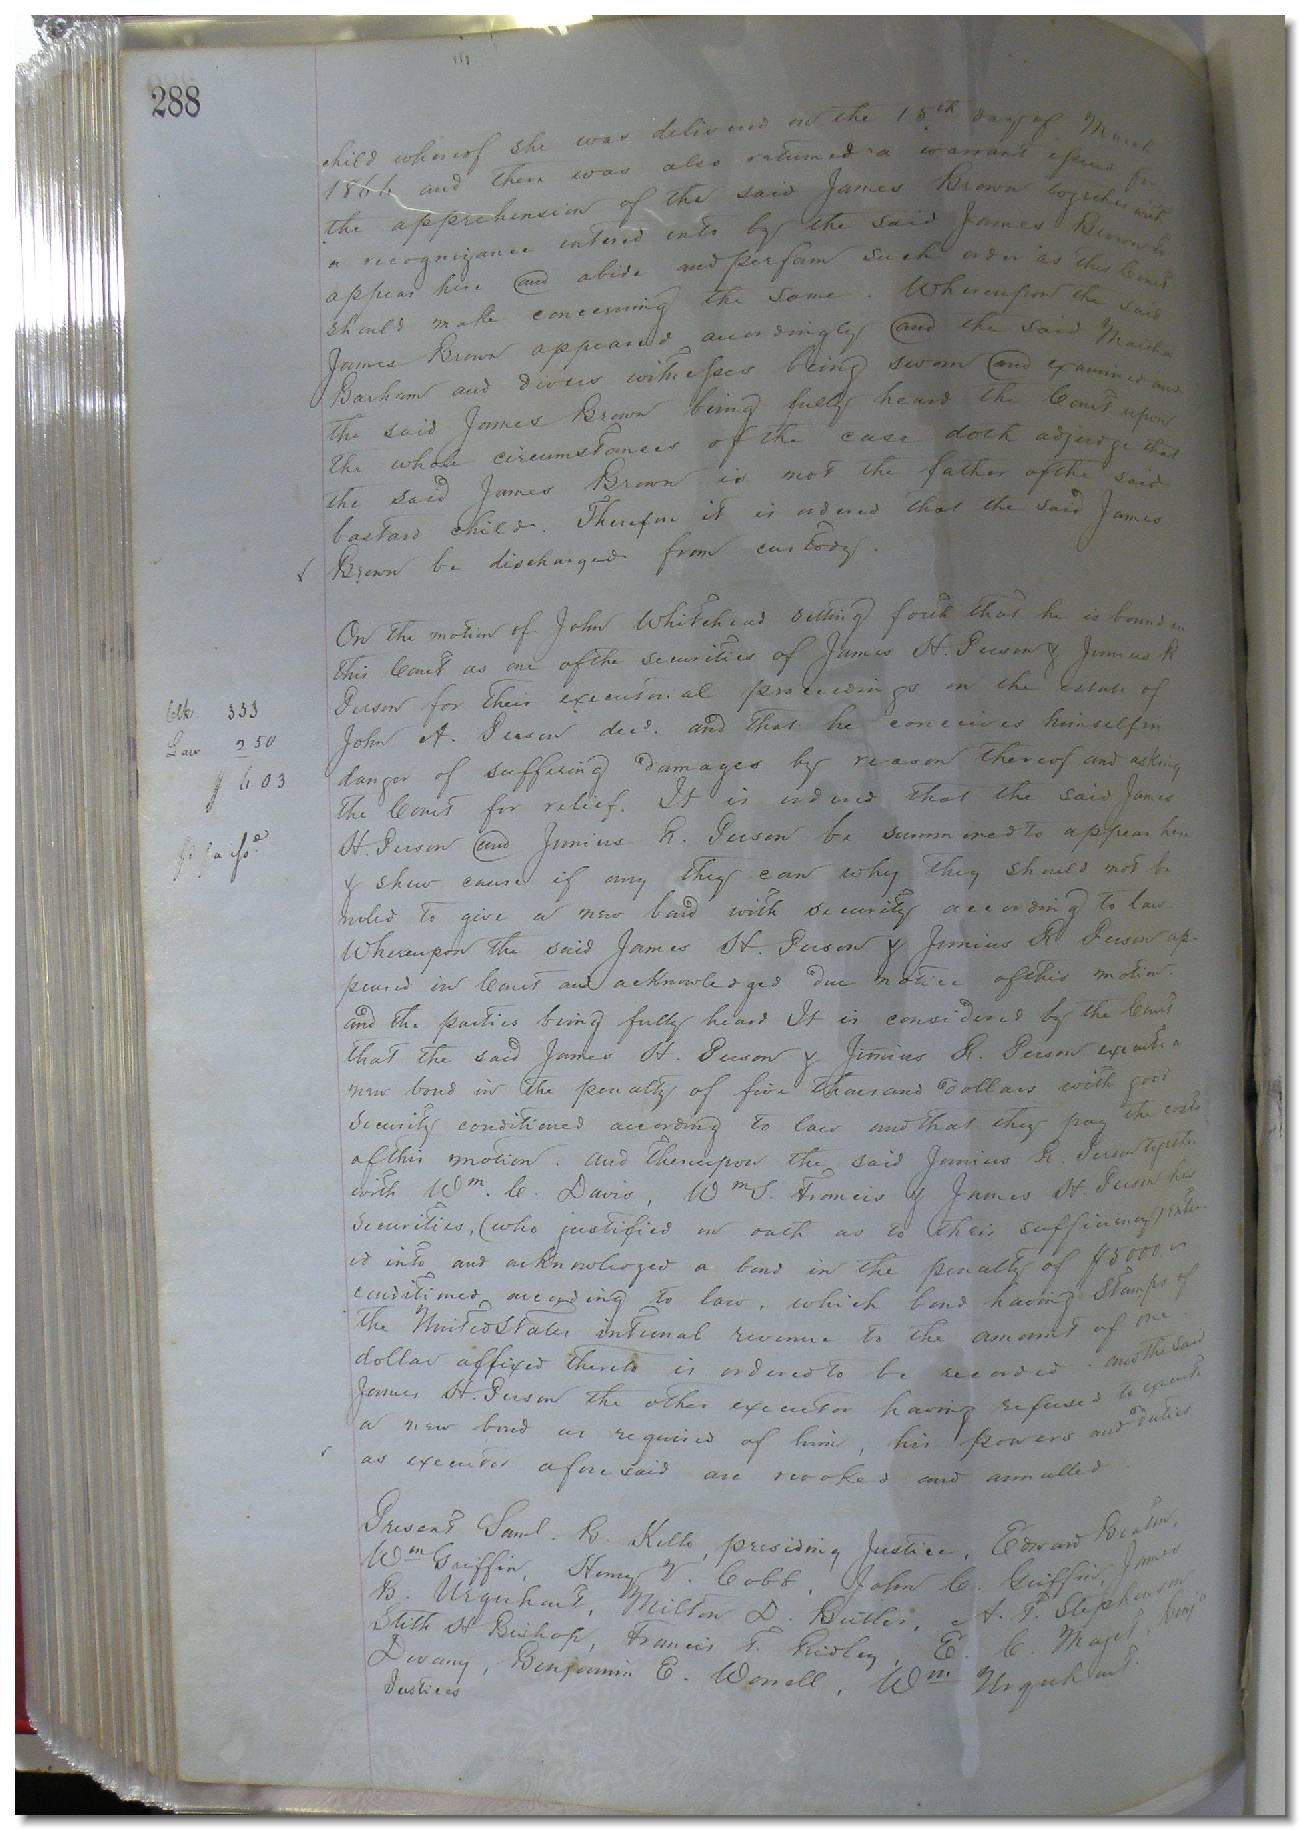 288
child whereof she was delivered on the 15th day of March
1866 and there was also returned a warrant issued for
the apprehension of the said James Brown together with
a recognizance entered into by the said James Brown to
appear here and abide and perform such order as this Court
should make concerning the same. Whereupon the said
James Brown appeared accordingly and the said Martha
Barham and divers witnesses being sworn and examined and
the said James Brown being fully heard the Court upon
the whole circumstances of the case doth adjudge that
the said James Brown is not the father of the said
bastard child. Therefore it is ordered that the said James
Brown be discharged from custody.
On the motion of John Whitehead setting forth that he is bound in
this Court as one of the securities of James H. Person & Junius R
Person for their executorial proceedings on the estate of
John A. Person decd. and that he conceives himself in
danger of suffering damages by reason thereof and asking
the Court for relief. It is ordered that the said James
H. Person and Junius R. Person be summoned to appear here
& shew cause if any they can why they should not be
ruled to give a new bond with security according to law
Whereupon the said James H. Person & Junius R. Person ap-
peared in Court and acknowledged due notice of this motion.
and the parties being fully heard It is considered by the Court
that the said James H. Person & Junius R. Person execute a
new bond in the penalty of five thousand dollars with good
security conditioned according to law and that they pay the costs
of this motion. and thereupon the said Junius R. Person together
with Wm. C. Davis, Wm S. Francis & James H. Person his
securities, (who justified on oath as to their sufficiency) enter-
ed into and acknowledged a bond in the penalty of $5000
conditioned according to law, which bond having Stamps of
the United States internal revenue to the amount of one
dollar affixed thereto is ordered to be recorded. and the said
James H. Person the other executor having refused to execute
a new bond as required of him, his powers and duties
as executor aforesaid are revoked and annulled.
Clk. 333
Law 250
Present Saml. B. Kello, presiding Justice, Edward Beaton,
Wm Griffin, Henry T. Cobb, John C. Griffin, James
B. Urquhart, Milton D. Butler, A. T. Stephenson
Stith H Bishop, Francis T. Ridley, E. C. Maget, Benja
Devany, Benjamin E. Worrell, Wm Urquhart.
Justices